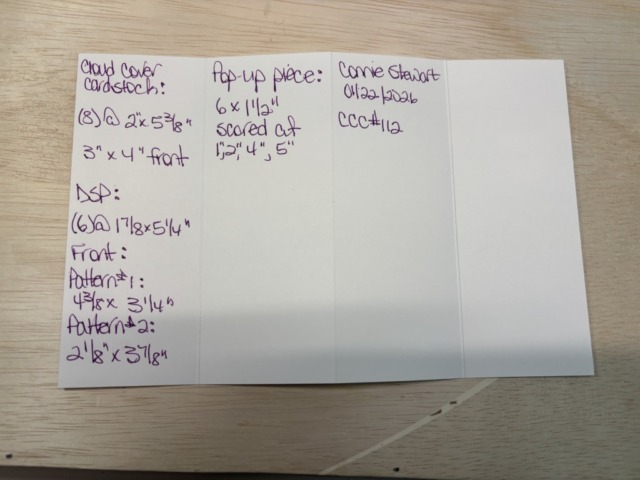 Cloud Cover
Cardstock:
(8)@ 2"x 5 3/8"
3" x 4" front
DSP:
(6)@ 1 7/8 x 5 1/4"
Front:
Pattern#1:
4 3/8 x 3 1/4"
Pattern#2:
2 1/8" x 3 7/8"
Pop-up piece:
6 x 1 1/2"
scored at
1", 2", 4", 5"
Connie Stewart
01/22/2026
CCC#112